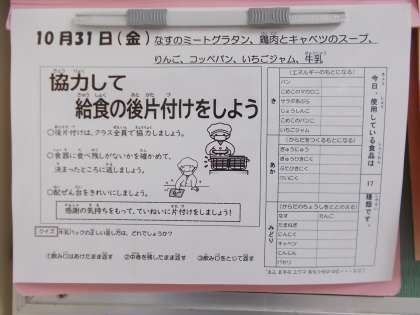 10月31日(金) なすのミートグラタン、鶏肉とキャベツのスープ、
りんご、コッペパン、いちごジャム、牛乳
協力して
給食の後片付けをしよう
○後片付けは、クラス全員で協力しましょう。
○食器に食べ残しがないかを確かめて、
決まったところに返しましょう。
○配ぜん台をきれいにしましょう。
感謝の気持ちをもって、ていねいに片付けをしましょう!
クイズ 牛乳パックの正しい返し方は、どれでしょうか?
①飲み口はあけたまま返す ②中身を残したまま返す ③飲み口をとじて返す
今日、使用している食品は
17
種類です。
き
(エネルギーのもとになる)
パン
こめこのマカロニ
サラダあぶら
じょうしんこ
こめこのパンこ
いちごジャム
あか
(からだをつくるもとになる)
ぎゅうにゅう
ぎゅうひきにく
ぶたひきにく
とりにく
みどり
(からだのちょうしをととのえる)
なす りんご
たまねぎ
にんにく
キャベツ
にんじん
パセリ